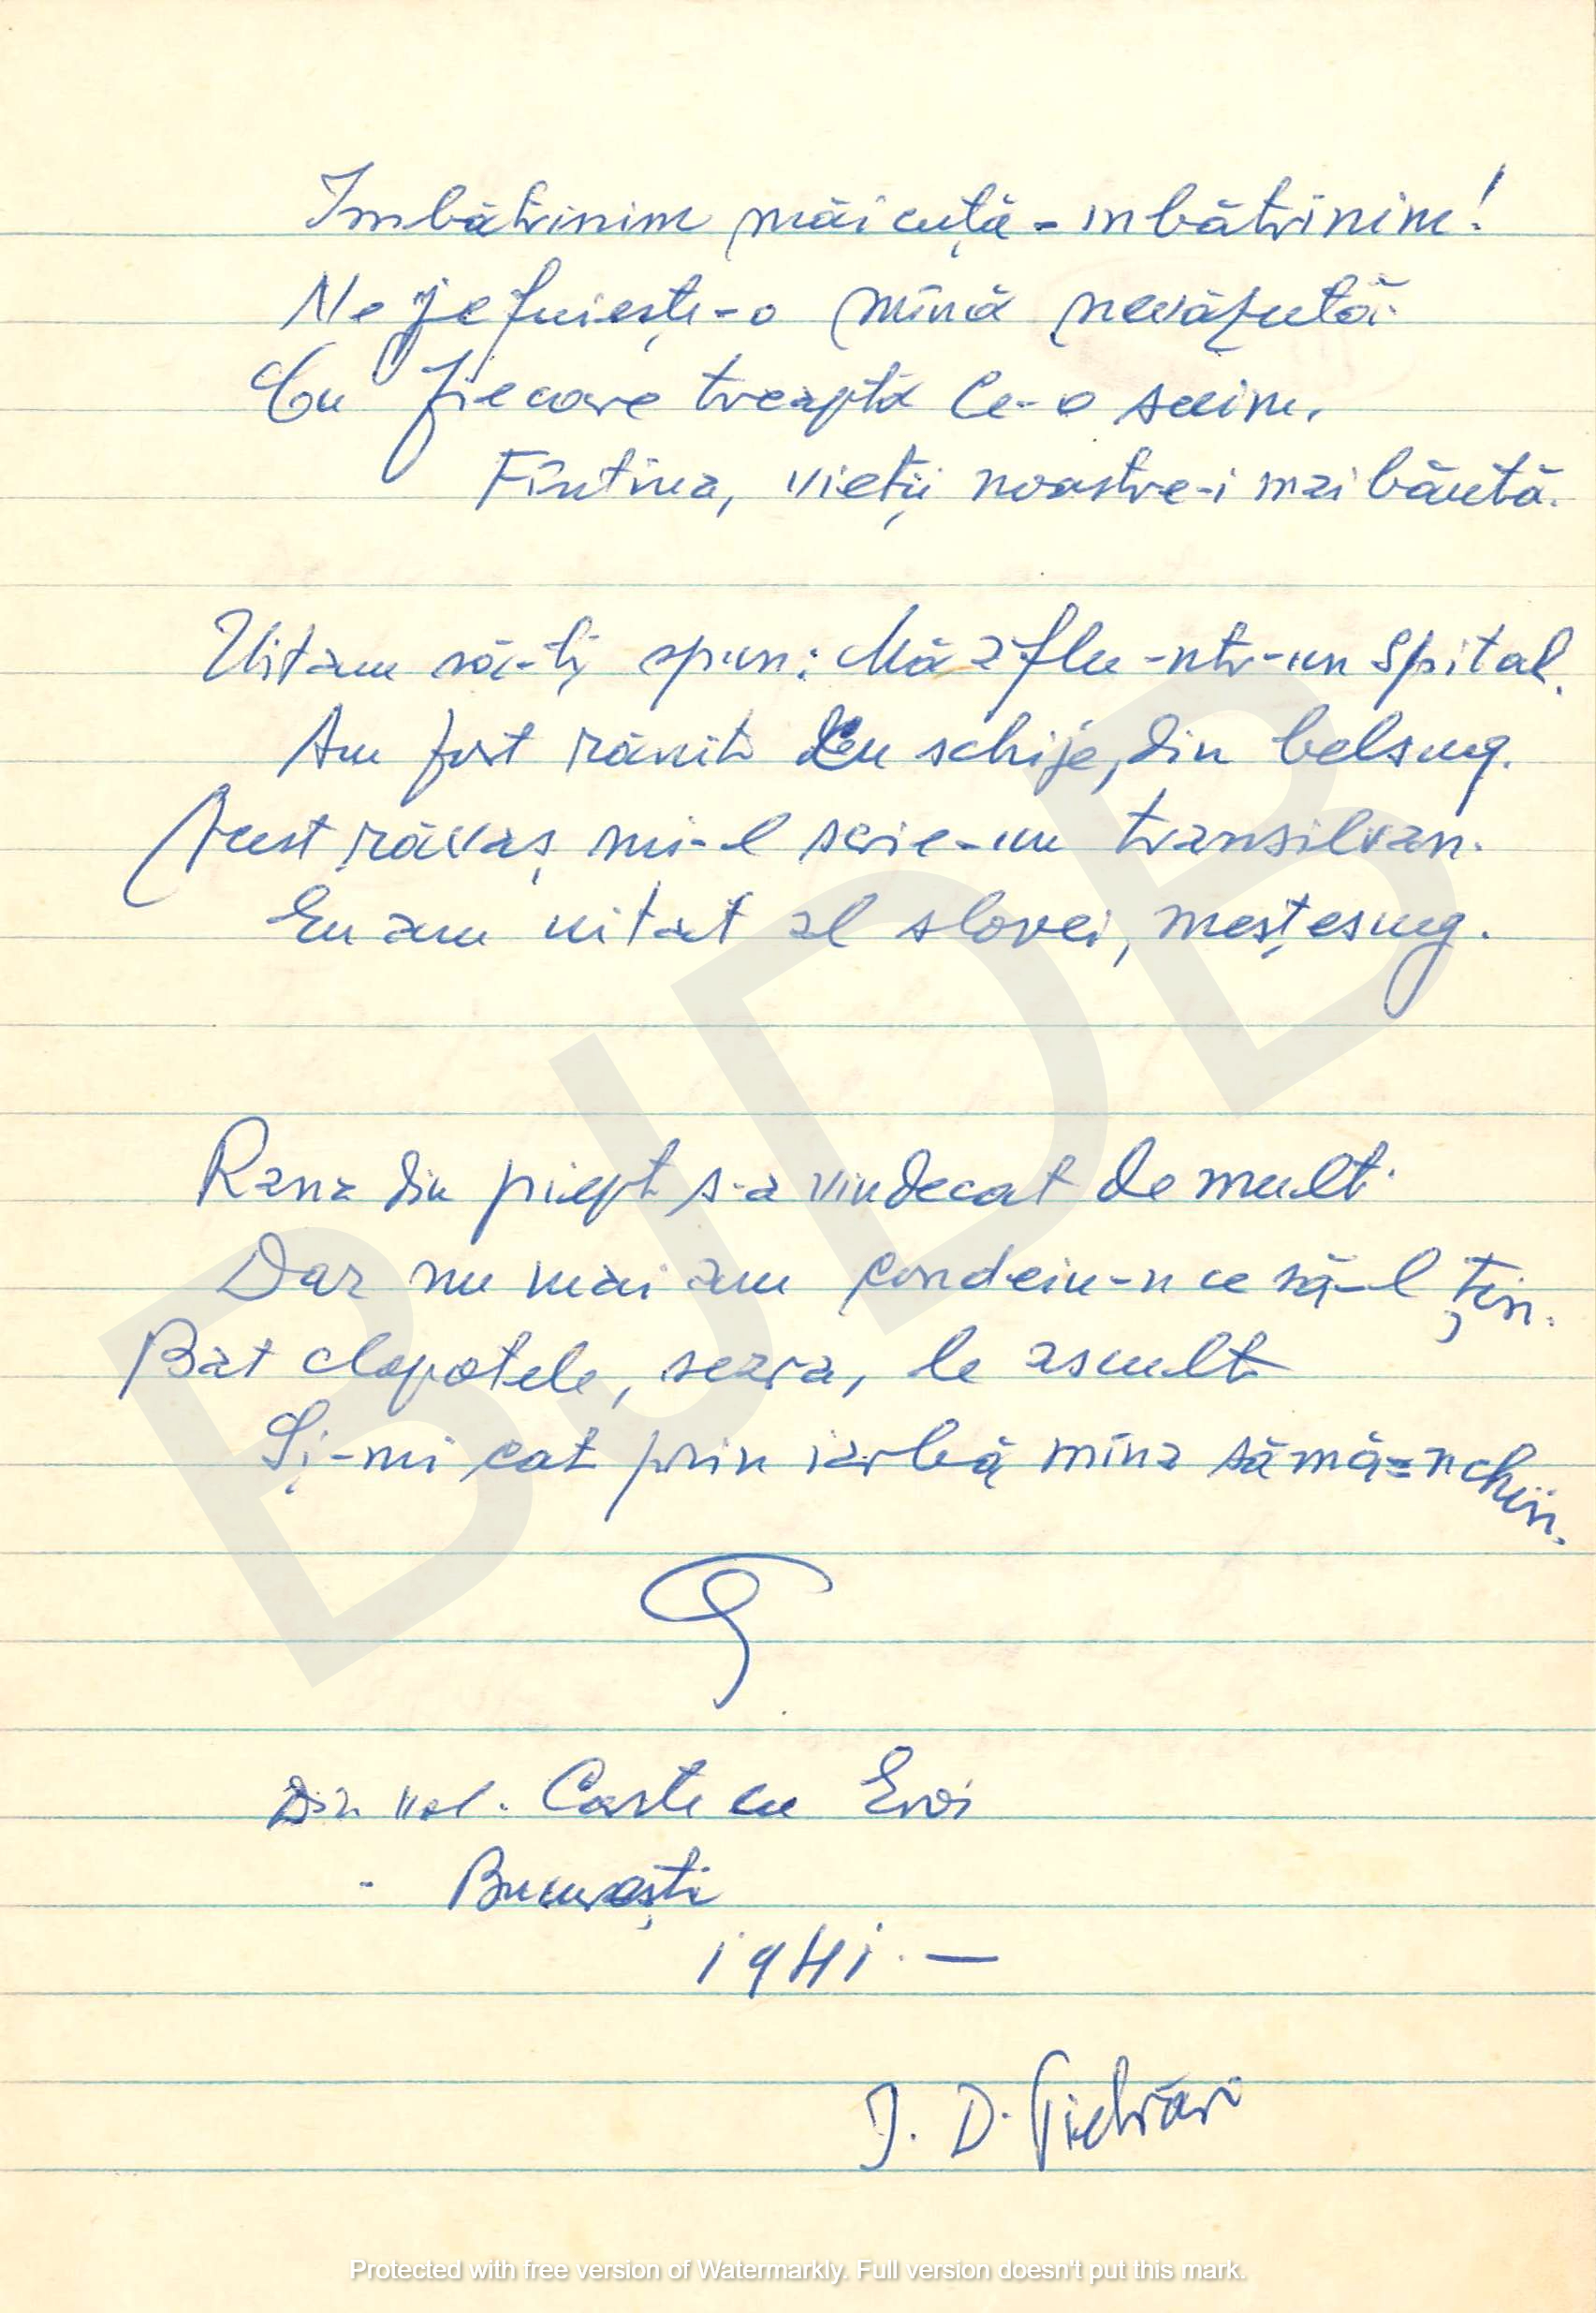 Imbătrinim măicuță - mbătrinim!
Ne jefuiește-o mînă nevăzută.
Cu fiecare treaptă ce-o suim,
Fîntîna, vieții noastre-i mai băută.
Uitam să-ți spun: Mă aflu-ntr-un spital.
Am fost rănit cu schije, din belsug.
Acest răvaș mi-l scrie-un transilvan.
Eu am uitat al slovei, meșteșug.
Rana din piept s-a vindecat de mult.
Dar nu mai am condeiu-n ce să-l țin.
Bat clopotele, seara, le ascult
Și-mi cat prin iarbă mîna să mă=nchin.
Din vol. Carte cu Eroi
- București
1941. —
I. D. Pietrari
BJDB
Protected with free version of Watermarkly. Full version doesn't put this mark.